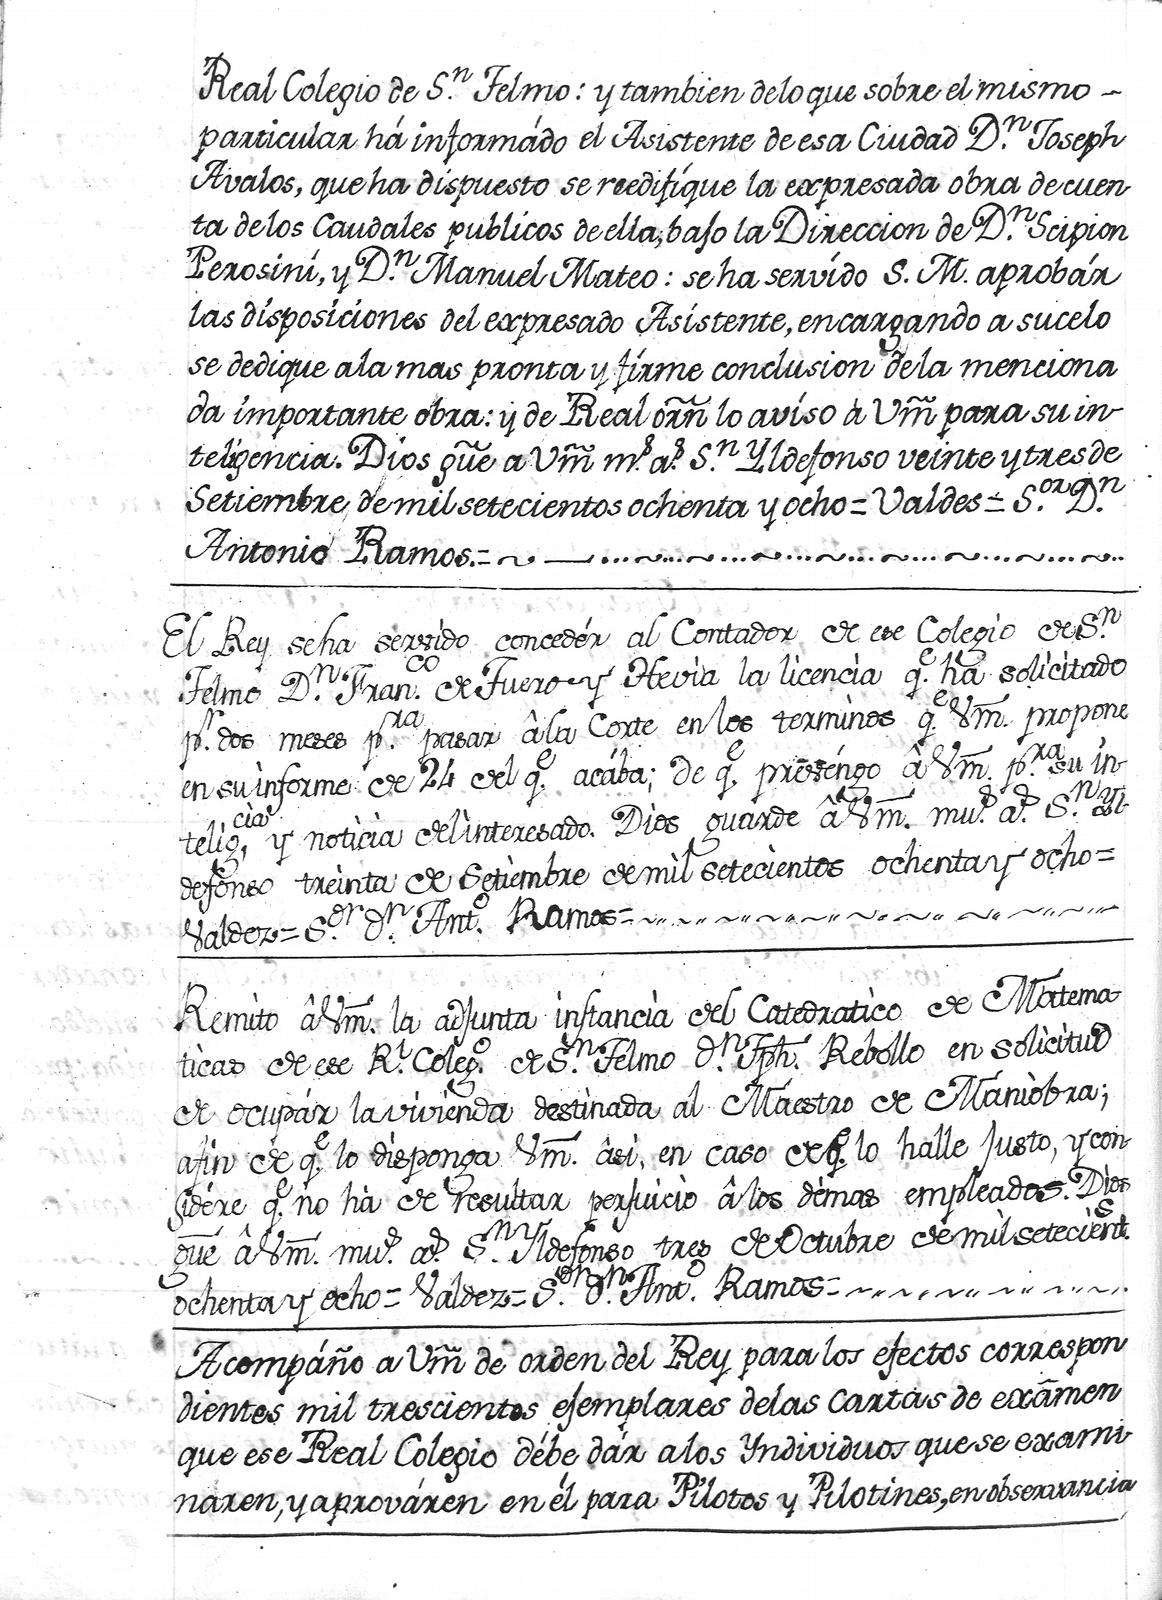 Real Colegio de S.ⁿ Telmo: y tambien delo que sobre el mismo -
particular há informádo el Asistente de esa Ciudad D.ⁿ Joseph
Avalos, que ha dispuesto se reedifíque la expresada obra de cuen-
ta de los Caudales publicos de ella, bajo la Direccion de D.ⁿ Scipion
Perosini, y D.ⁿ Manuel Mateo: se ha servído S. M. aprobár
las disposiciones del expresado Asistente, encargando a su celo
se dedique ala mas pronta y fírme conclusion dela menciona
da importante obra: y de Real orñ lo aviso à Vm̃ para su in-
teligencia. Dios gũe a Vm̃ m.ˢ a.ˢ S.ⁿ Yldefonso veinte y tres de
Setiembre de mil setecientos ochenta y ocho = Valdes = S.ᵒʳ D.ⁿ
Antonio Ramos.=
El Rey se ha servido concedér al Contador de ese Colegio de S.ⁿ
Telmo D.ⁿ Fran.ᶜᵒ de Fuero y Hevia la licencia q.ᵉ ha solicitado
p.ʳ dos meses p.ʳᵃ pasar â la Corte en los terminos q.ᵉ Vm̃. propone
en su informe de 24 del q.ᵉ acába; de q.ᵉ prevéngo â Vm̃. p.ʳᵃ su in-
telig.ᶜⁱᵃ, y noticia del interesado. Dios guarde â Vm̃. mu.ˢ a.ˢ S.ⁿ Yl-
defonso treinta de Setiembre de mil setecientos ochenta y ocho =
Valdez = S.ᵒʳ d.ⁿ Ant.º Ramos =
Remito â Vm̃. la adjunta instancia del Catedratico de Matema-
ticas de ese R.ˡ Coleg.º de S.ⁿ Telmo d.ⁿ Jph. Rebollo en solicitud
de ocupár la vivienda destinada al Maestro de Maniobra;
afin de q.ᵉ lo disponga Vm̃. âsi, en caso de q.ᵉ lo halle justo, y con-
sidére q.ᵉ no hà de resultar perjuicio â los démas empleados. Dios
gũe â Vm̃. mu.ˢ a.ˢ S.ⁿ Yldefonso tres de Octubre de mil setecient.ˢ
ochenta y ocho = Valdez = S.ᵒʳ d.ⁿ Ant.º Ramos =
Acompáño a Vm̃ de orden del Rey para los efectos correspon
dientes mil trescientos ejemplares delas Cartas de exãmen
que ese Real Colegio débe dár a los Yndividuos que se exami-
náren, y aprováren en él para Pilotos y Pilotines, en observancia